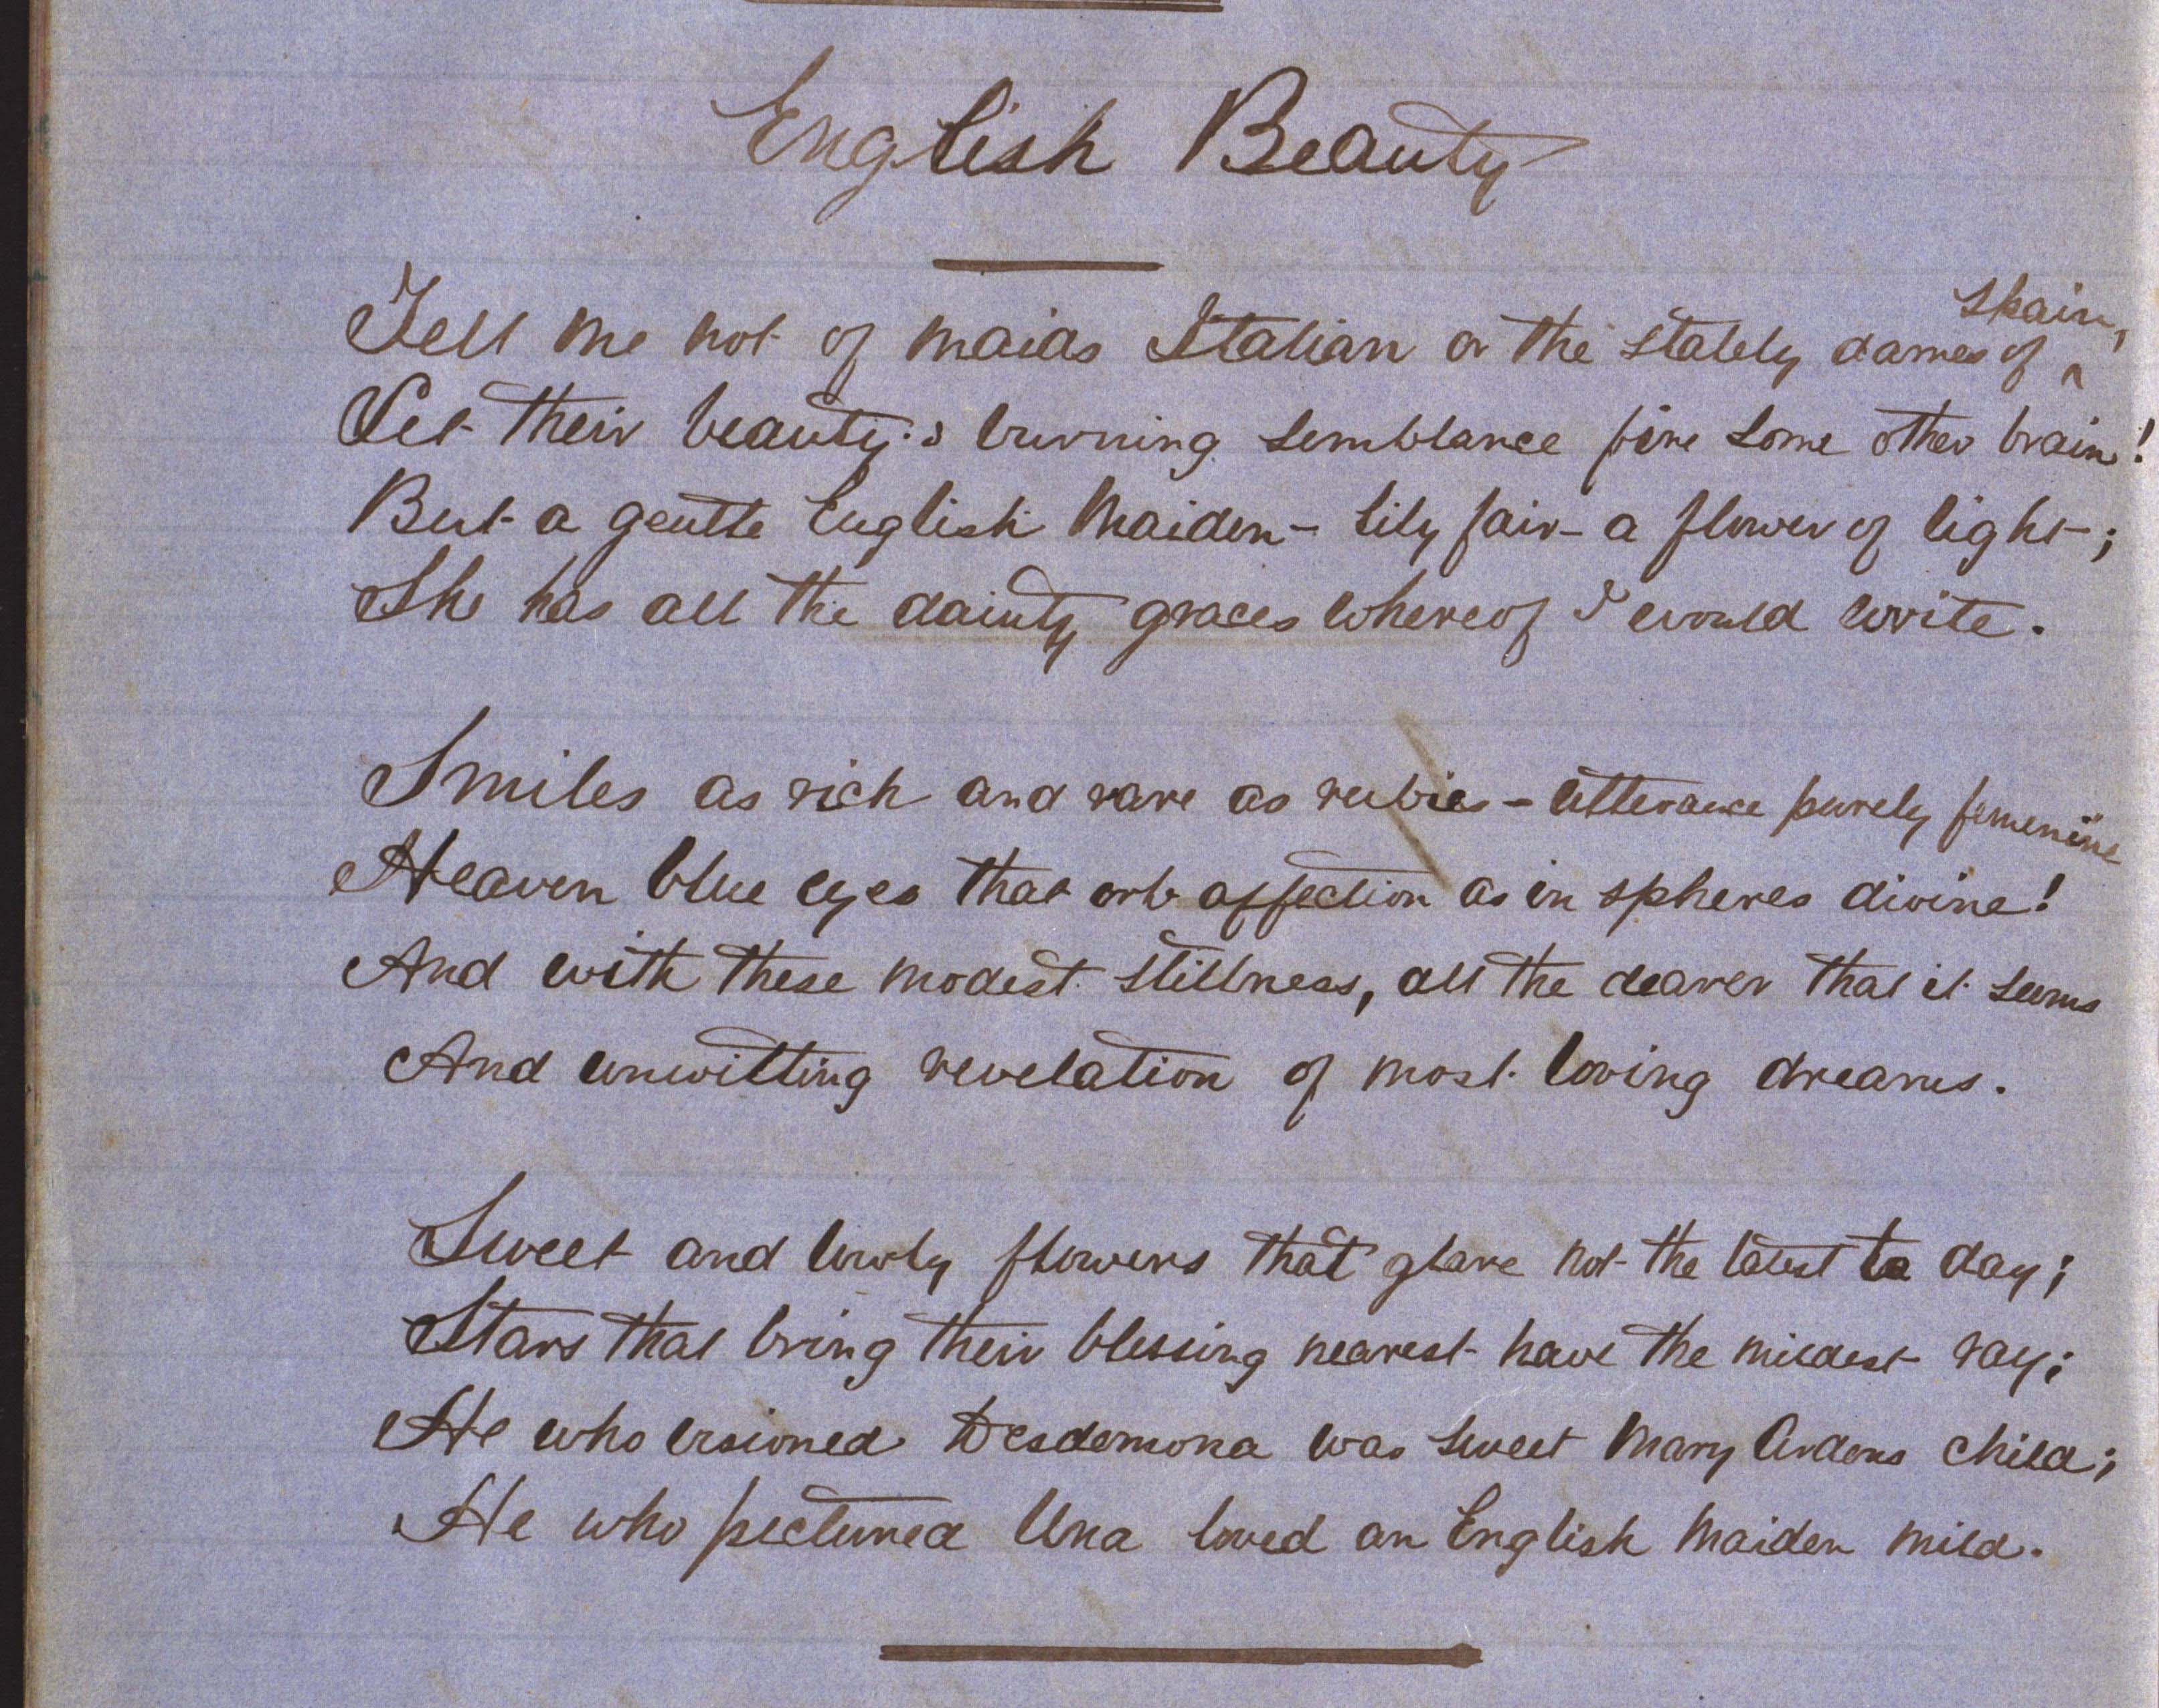 English Beauty
Tell me not of maids Italian or the stately dames of Spain,
Let their beauty's burning semblance fire some other brain!
But a gentle English Maiden - lily fair - a flower of light;
She has all the dainty graces whereof I would write.
Smiles as rich and rare as rubies - utterance purely femenine
Heaven blue eyes that orb affection as in spheres divine!
And with these modest stillness, all the dearer that it seems
And unwitting revelation of most loving dreams.
Sweet and lowly flowers that glare not the latest to day;
Stars that bring their blessing nearest have the mildest ray;
He who visioned Desdemona was sweet Mary Ardens child;
He who pictured Una loved an English Maiden mild.